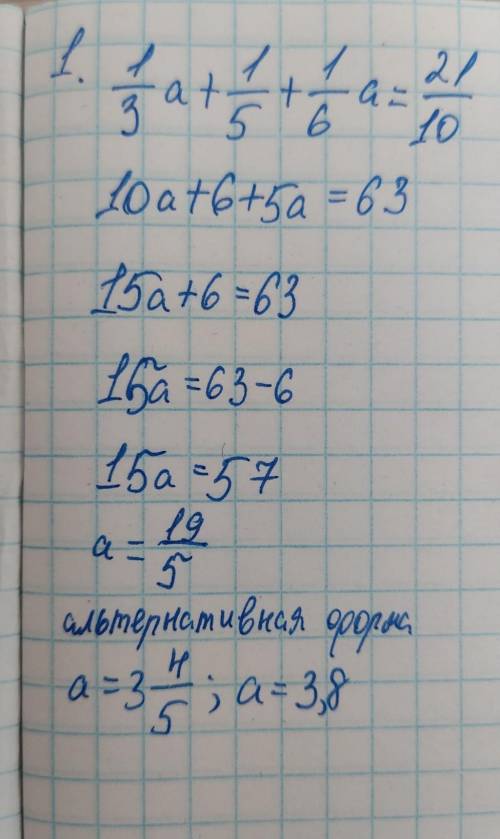 1. 1/3 a + 1/5 + 1/6 a = 21/10
10a+6+5a = 63
15a+6=63
15a=63-6
15a=57
a = 19/5
альтернативная форма
a = 3 4/5 ; a = 3,8